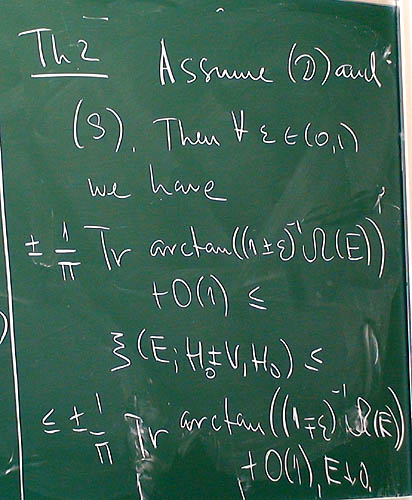 Th 2 Assume (D) and
(S). Then ∀ ε ∈ (0,1)
we have
± 1/π Tr arctan((1±ε)⁻¹Ω(E))
+O(1) ≤
ξ(E; H₀±V, H₀) ≤
≤ ± 1/π Tr arctan((1∓ε)⁻¹Ω(E))
+O(1), E↓0.